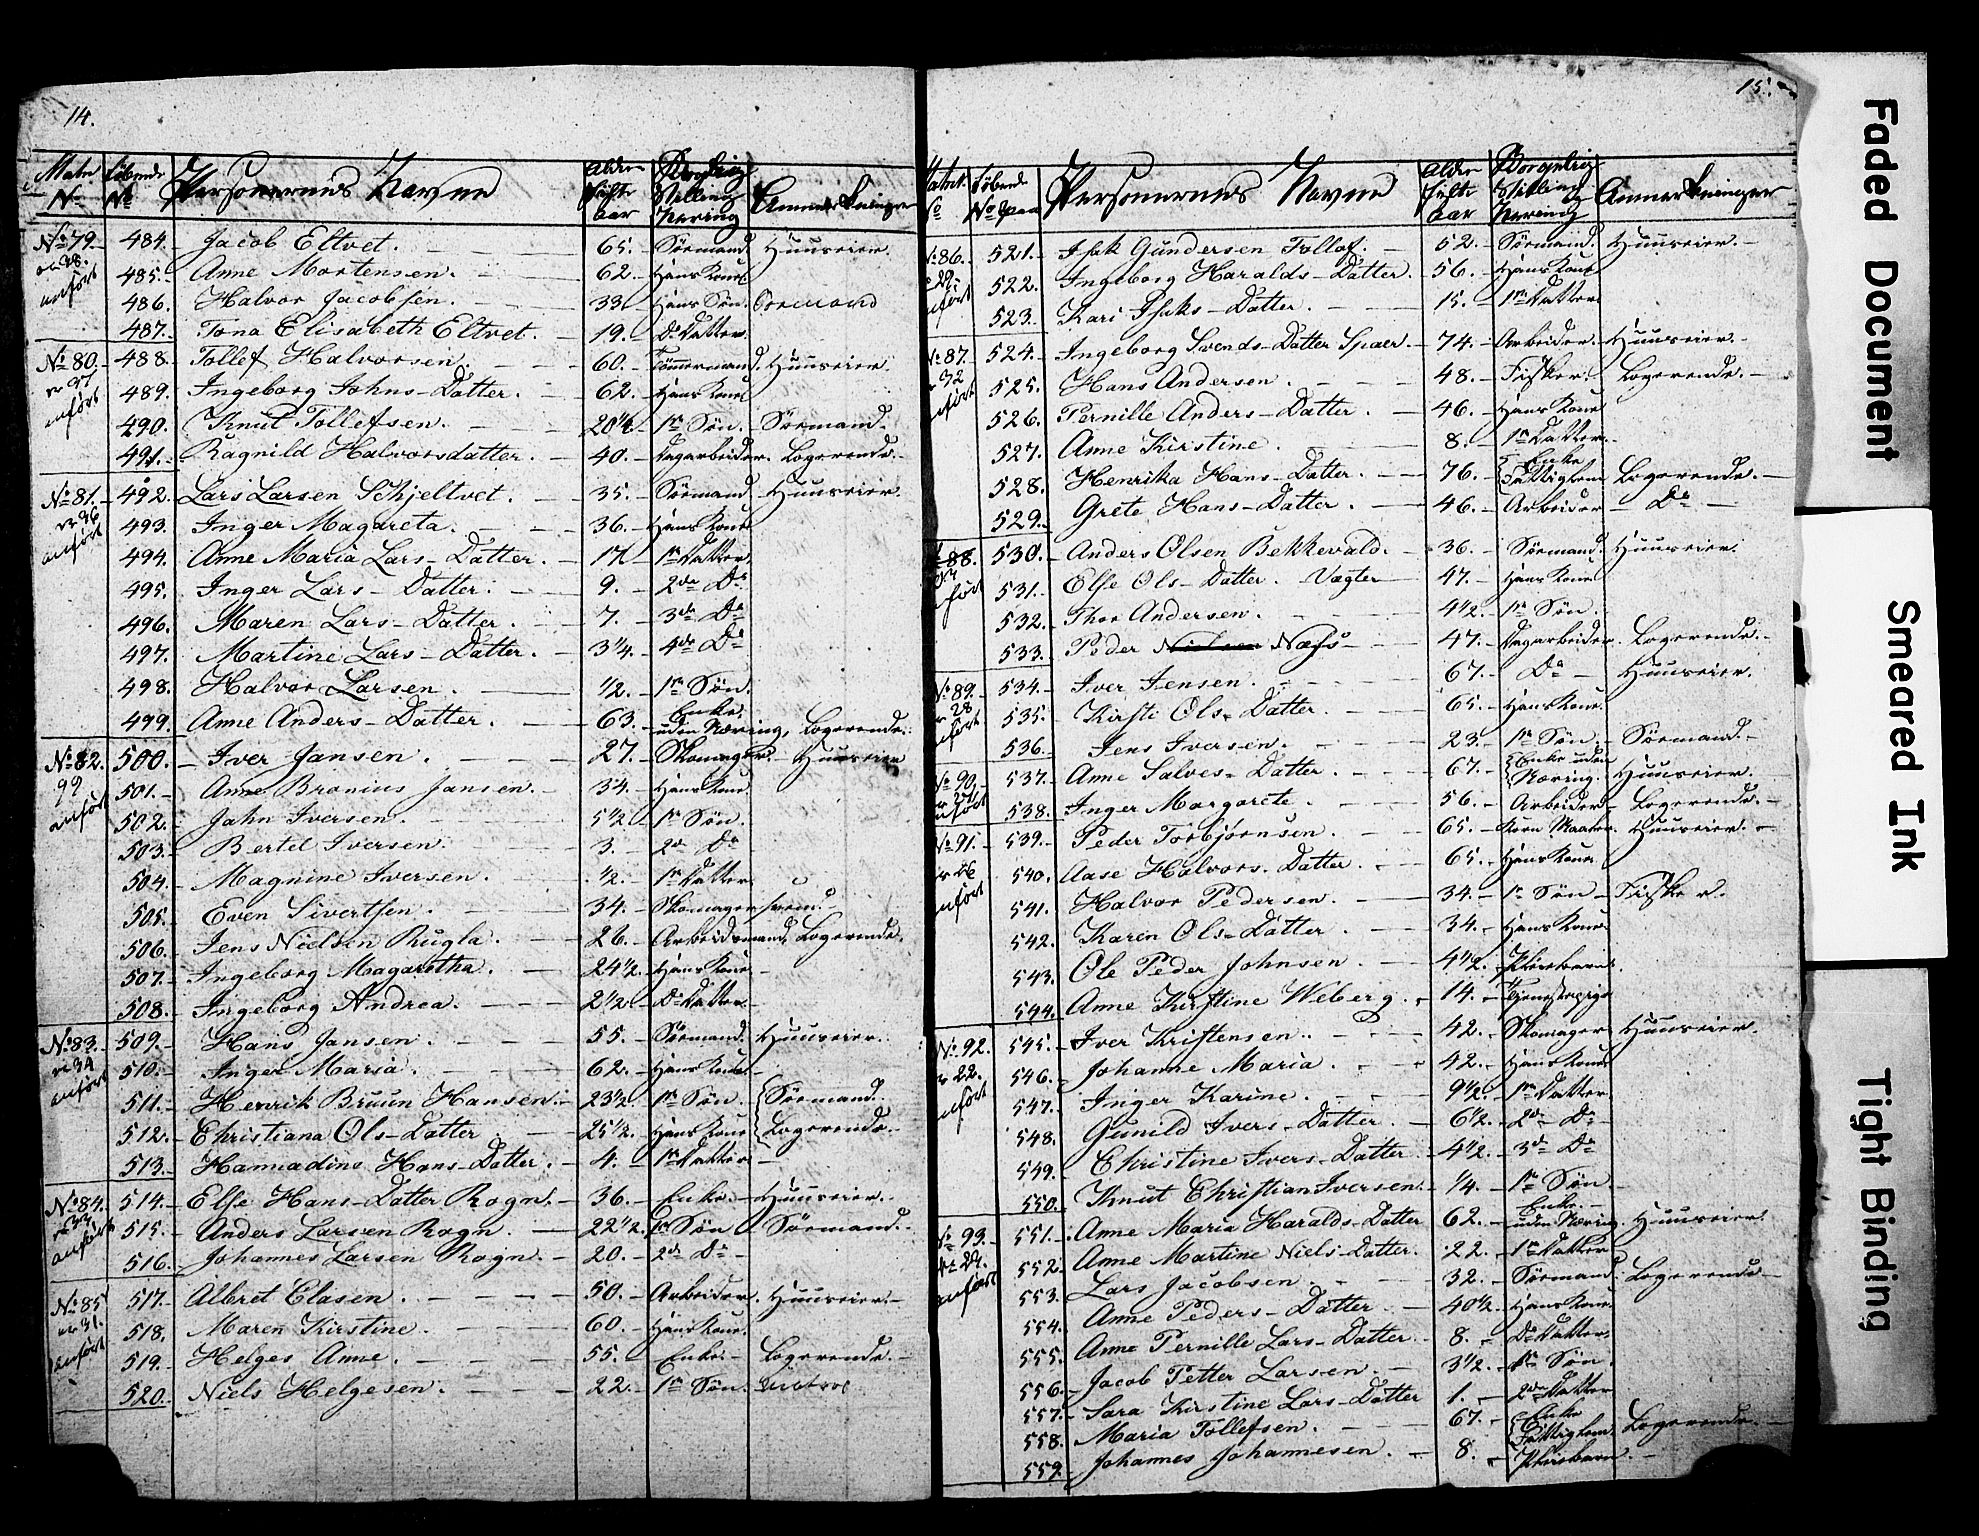 14.
Matr No Løbende No Personernes Navne Alder Fulte Aar Borgerlig Stilling Næring Anmerkninger
No 79. 484. Jacob Eltvet. 65. Sørmand Huuseier.
anført 485. Anne Mortensen. 62. Hans Kone
486. Halvor Jacobsen. 33. Hans Søn.
487. Tona Elisabeth Eltvet. 19. Do Datter.
No 80. 488. Tollef Halvorsen. 60. Tømmermand. Huuseier.
anført 489. Ingeborg Johns-Datter. 62. Hans Kone
490. Knut Tollefsen. 20 1/2 1ste Søn. Sørmand.
491. Ragnild Halvorsdatter. 40. Dagarbeider. Logerende.
No 81. 492. Lars Larsen Skjeltvet. 35. Sørmand Huuseier.
anført 493. Inger Magareta. 36. Hans Kone
494. Anne Maria Lars-Datter. 1ste Datter
495. Inger Lars-Datter. 9. 2den Do
496. Maren Lars-Datter. 7. 3de Do
497. Martine Lars-Datter. 3 1/4. 4de Do
498. Halvor Larsen. 1/2. 1ste Søn.
499. Anne Anders-Datter. 63. Enke, uden Næring, Logerende.
No 82. 500. Iver Jansen. 27. Skomager Huuseier
anført 501. Anne Bronius Jansen. 34. Hans Kone
502. Jahn Iversen. 5 1/2 1ste Søn.
503. Bertel Iversen. 3. 2den Do
504. Magnine Iversen. 1/2. 1ste Datter
505. Even Sivertsen. 34. Skomagersvend.
506. Jens Nielsen Rugla. 26. Arbeidsmand, Logerende.
507. Ingeborg Magaretha. 24 1/2. Hans Kone
508. Ingeborg Andrea. 2 1/2 Do Datter
No 83. 509. Hans Jansen. 55. Sørmand. Huuseier.
anført 510. Inger Maria. 62. Hans Kone
511. Henrik Bruun Hansen. 23 1/2. 1ste Søn. Sørmand.
512. Christiana Ols-Datter 25 1/2. Hans Kone Logerende.
513. Hannadine Hans-Datter. 4. 1ste Datter
No 84. 514. Else Hans-Datter Rogn. 36. Enke. Huuseier.
anført 515. Anders Larsen Rogn. 22 1/2. 1ste Søn Sørmand.
516. Johannes Larsen Rogn. 20. 2den Do
No 85 517. Albret Clasen. 50. Arbeider. Huuseier.
anført 518. Maren Kirstine. 60. Hans Kone.
519. Helges Anne. 55. Enke. Logerende.
520. Niels Helgesen. 22. 1ste Søn.
15.
Matr No Løbende No Personernes Navne Alder Fulte Aar Borgerlig Stilling Næring Anmerkninger
No 86. 521. Isak Gundersen 52. Sørmand. Huuseier.
522. Ingeborg Haralds-Datter. 56. Hans Kone
523. Kari Isaks-Datter. 15. 1ste Datter
No 87. 524. Ingeborg Svends-Datter Spaer. 74. Arbeider. Huuseier.
anført 525. Hans Andersen. 48. Fisker. Logerende.
526. Pernille Anders-Datter. 46. Hans Kone
527. Anne Kirstine. 8. 1ste Datter.
528. Henrika Hans-Datter. 76. Enke Fattiglem Logerende.
529. Grete Hans-Datter. 46. Arbeider Do
88. 530. Anders Olsen Bekkevald. 36. Sørmand. Huuseier.
531. Else Ols-Datter. Vagter 47. Hans Kone
532. Thor Andersen. 4 1/2. 1ste Søn.
533. Peder Nielsen Næss 47. Dagarbeider. Logerende.
No 89. 534. Iver Jensen. 67. Do Huuseier.
535. Kirsti Ols-Datter. 65. Hans Kone.
536. Jens Iversen. 23. 1ste Søn. Sørmand.
No 90. 537. Anne Salves-Datter. 67. Enke uden Næring. Huuseier.
538. Inger Margarete. 56. Arbeider Logerende.
No 91. 539. Peder Torbjørnsen. 65. Korn Maaler. Huuseier.
540. Aase Halvors-Datter. 65. Hans Kone
541. Halvor Pedersen. 34. 1ste Søn Fisker.
542. Karen Ols-Datter. 34. Hans Kone
543. Ole Peder Johnsen. 4 1/2. Pleiebarn.
544. Anne Kirstine Weberg. 14. Tjenestepige
No 92. 545. Iver Kristensen. 42. Skomager Huuseier.
546. Johanne Maria. 42. Hans Kone
547. Inger Karine. 9 1/2. 1ste Datter
548. Gunild Ivers-Datter. 6 1/2. 2den Do
549. Christine Ivers-Datter. 4 1/2. 3de Do
550. Knut Christian Iversen. 1/4. 1ste Søn
No 93. 551. Anne Maria Haralds-Datter 62. Enke uden Næring. Huuseier
552. Anne Martine Niels-Datter. 22. 1ste Datter
553. Lars Jacobsen. 32. Sørmand. Logerende
554. Anne Peders-Datter. 40 1/2. Hans Kone.
555. Anne Pernille Lars-Datter. 8. Do Datter.
556. Jacob Petter Larsen. 3 1/2. Søn.
557. Sara Kirstine Lars-Datter 1. 2den Datter
558. Maria Tollefsen. 67. Enke Fattiglem. Logerende.
559. Johannes Johannesen. 8. Pleiebarn.
Faded Document
Smeared Ink
Tight Binding